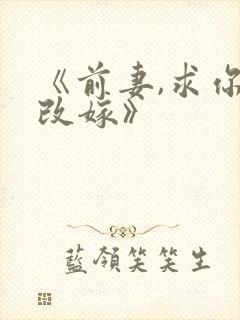 《前妻,求你
改嫁》
藍領笑笑生